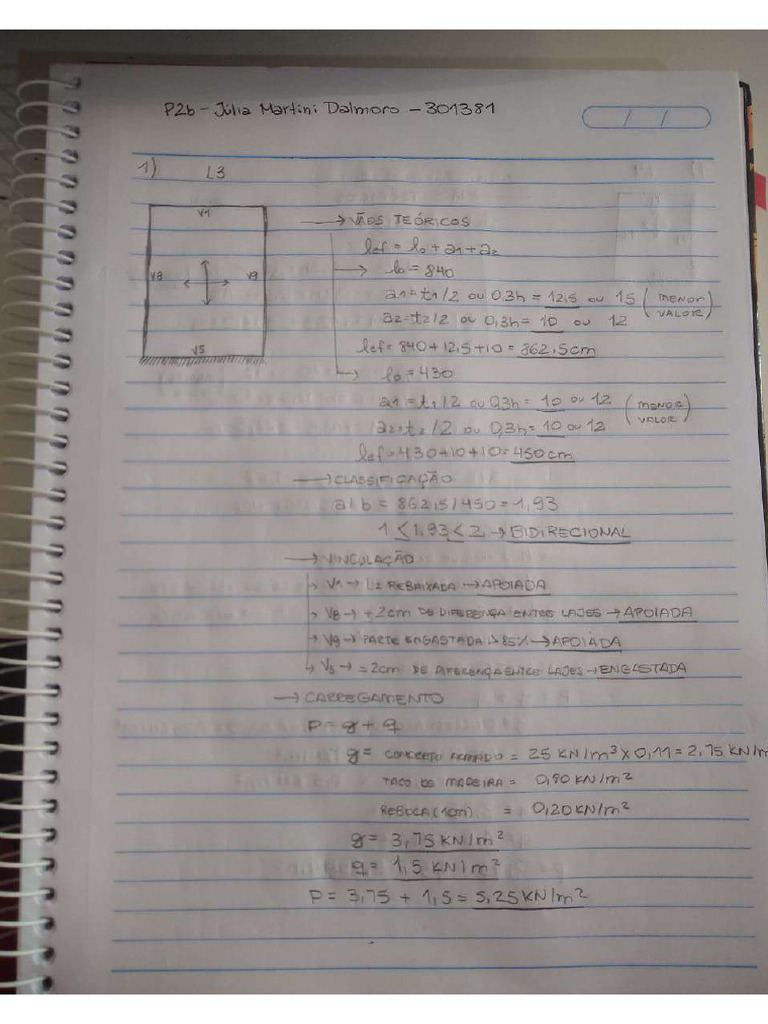 P2b - Júlia Martini Dalmoro - 301381
/ /
1) L3
V1
V8 V9
V5
→ VÃOS TEÓRICOS
lef = l0 + a1 + a2
→ l0 = 840
a1 = t1/2 ou 0,3h = 12,5 ou 15 (MENOR VALOR)
a2 = t2/2 ou 0,3h = 10 ou 12
lef = 840 + 12,5 + 10 = 862,5cm
→ l0 = 430
a1 = t1/2 ou 0,3h = 10 ou 12 (MENOR VALOR)
a2 = t2/2 ou 0,3h = 10 ou 12
lef = 430 + 10 + 10 = 450 cm
→ CLASSIFICAÇÃO
a/b = 862,5/450 = 1,93
1 < 1,93 < 2 → BIDIRECIONAL
→ VINCULAÇÃO
→ V1 → L2 REBAIXADA → APOIADA
→ V8 → + 2cm DE DIFERENÇA ENTRE LAJES → APOIADA
→ V9 → PARTE ENGASTADA > 85% → APOIADA
→ V5 → = 2cm DE DIFERENÇA ENTRE LAJES → ENGASTADA
→ CARREGAMENTO
P = g + q
g = CONCRETO ARMADO = 25 KN/m³ x 0,11 = 2,75 KN/m
TACO DE MADEIRA = 0,80 KN/m²
REBOCA (1cm) = 0,20 KN/m²
g = 3,75 KN/m²
q = 1,5 KN/m²
P = 3,75 + 1,5 = 5,25 KN/m²